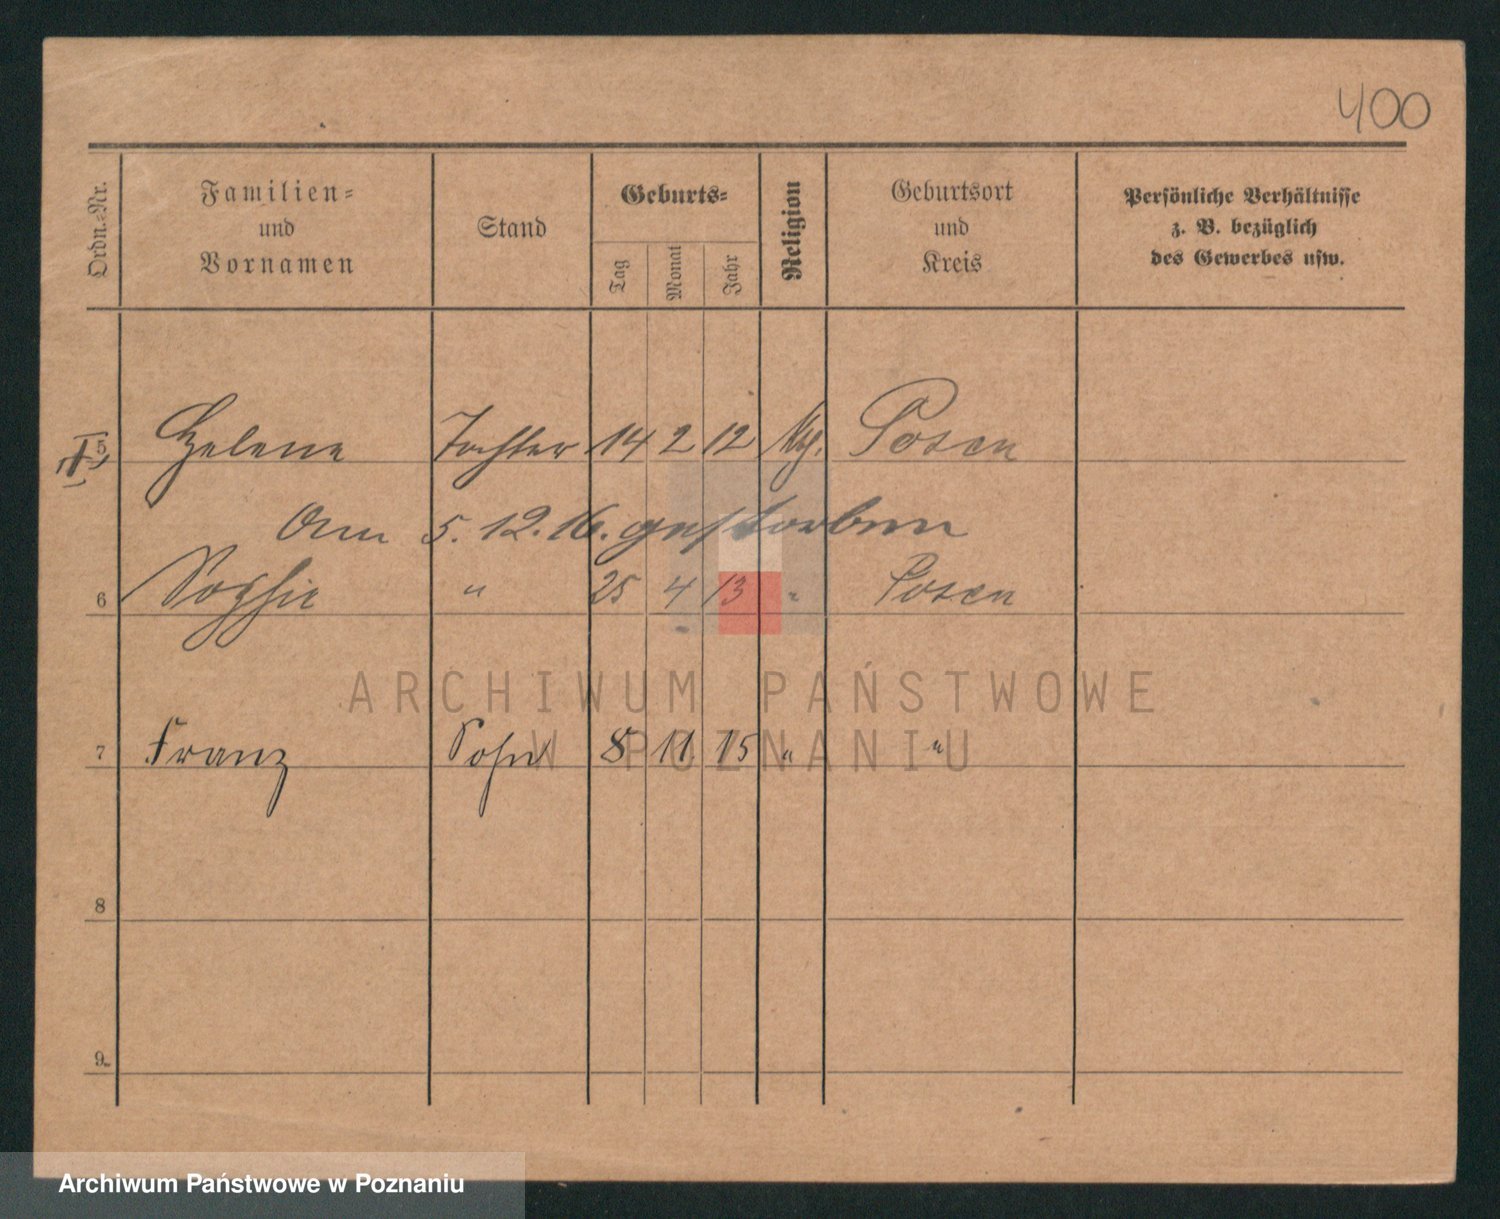 400
Ordn.-Nr.
Familien-
und
Vornamen
Stand
Geburts-
Tag
Monat
Jahr
Religion
Geburtsort
und
Kreis
Persönliche Verhältnisse
z. B. bezüglich
des Gewerbes usw.
5 Helene Tochter 14 2 12 Posen
Am 5. 12. 16. gestorben
6 Sophie " 25 4 13 " Posen
7 Franz Sohn 8 11 15 " "
8
9
ARCHIWUM PAŃSTWOWE
W POZNANIU
Archiwum Państwowe w Poznaniu